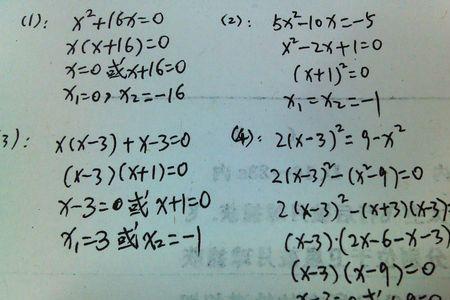 (1): x²+16x=0
x(x+16)=0
x=0 或 x+16=0
x₁=0, x₂=-16
(2): 5x²-10x=-5
x²-2x+1=0
(x+1)²=0
x₁=x₂=-1
3): x(x-3)+x-3=0
(x-3)(x+1)=0
x-3=0 或 x+1=0
x₁=3 或 x₂=-1
(4): 2(x-3)²=9-x²
2(x-3)²-(x²-9)=0
2(x-3)²-(x+3)(x-3)=
(x-3)·(2x-6-x-3)
(x-3)(x-9)=0